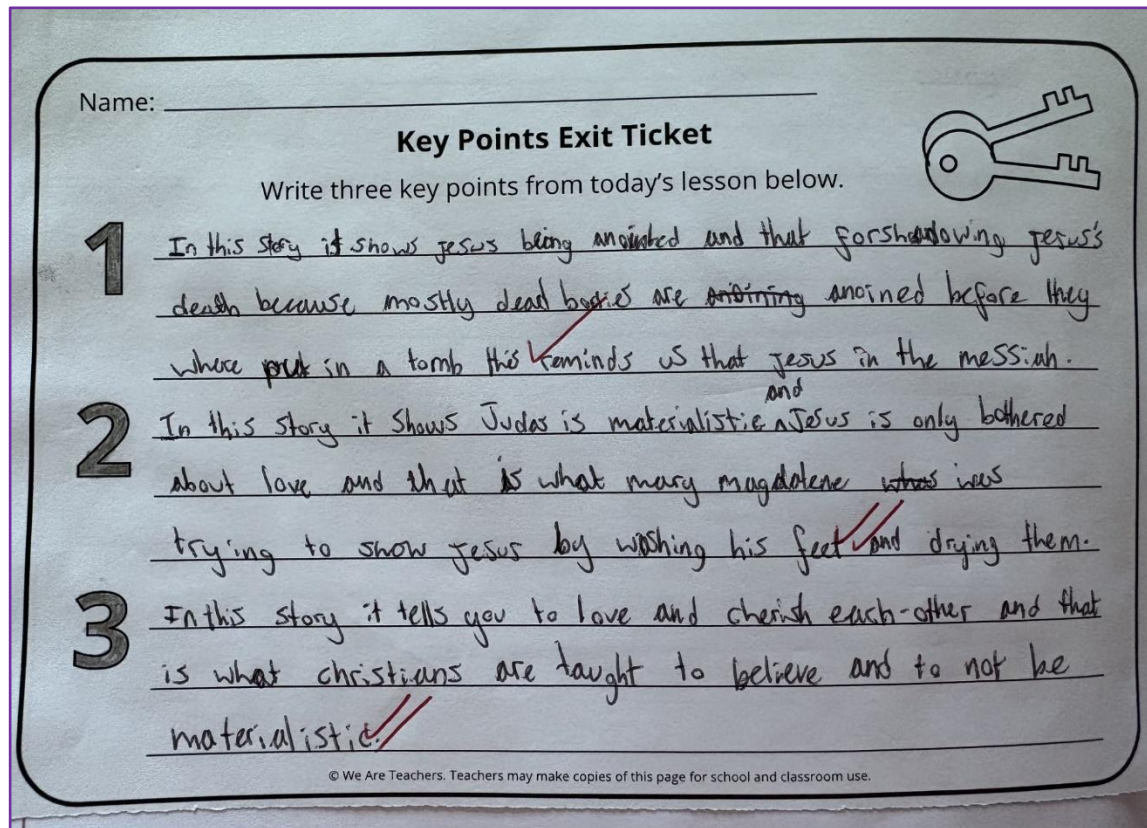 Name:
Key Points Exit Ticket
Write three key points from today's lesson below.
1
In this story it shows jesus being anointed and that forshadowing jesus's
death because mostly dead bodies are anoining anoined before they
where put in a tomb this reminds us that jesus in the messiah.
2
In this story it shows Judas is materialistic and Jesus is only bothered
about love and that is what mary magdalene whas was
trying to show jesus by washing his feet and drying them.
3
In this story it tells you to love and cherish each-other and that
is what christians are taught to believe and to not be
materialistic.
© We Are Teachers. Teachers may make copies of this page for school and classroom use.